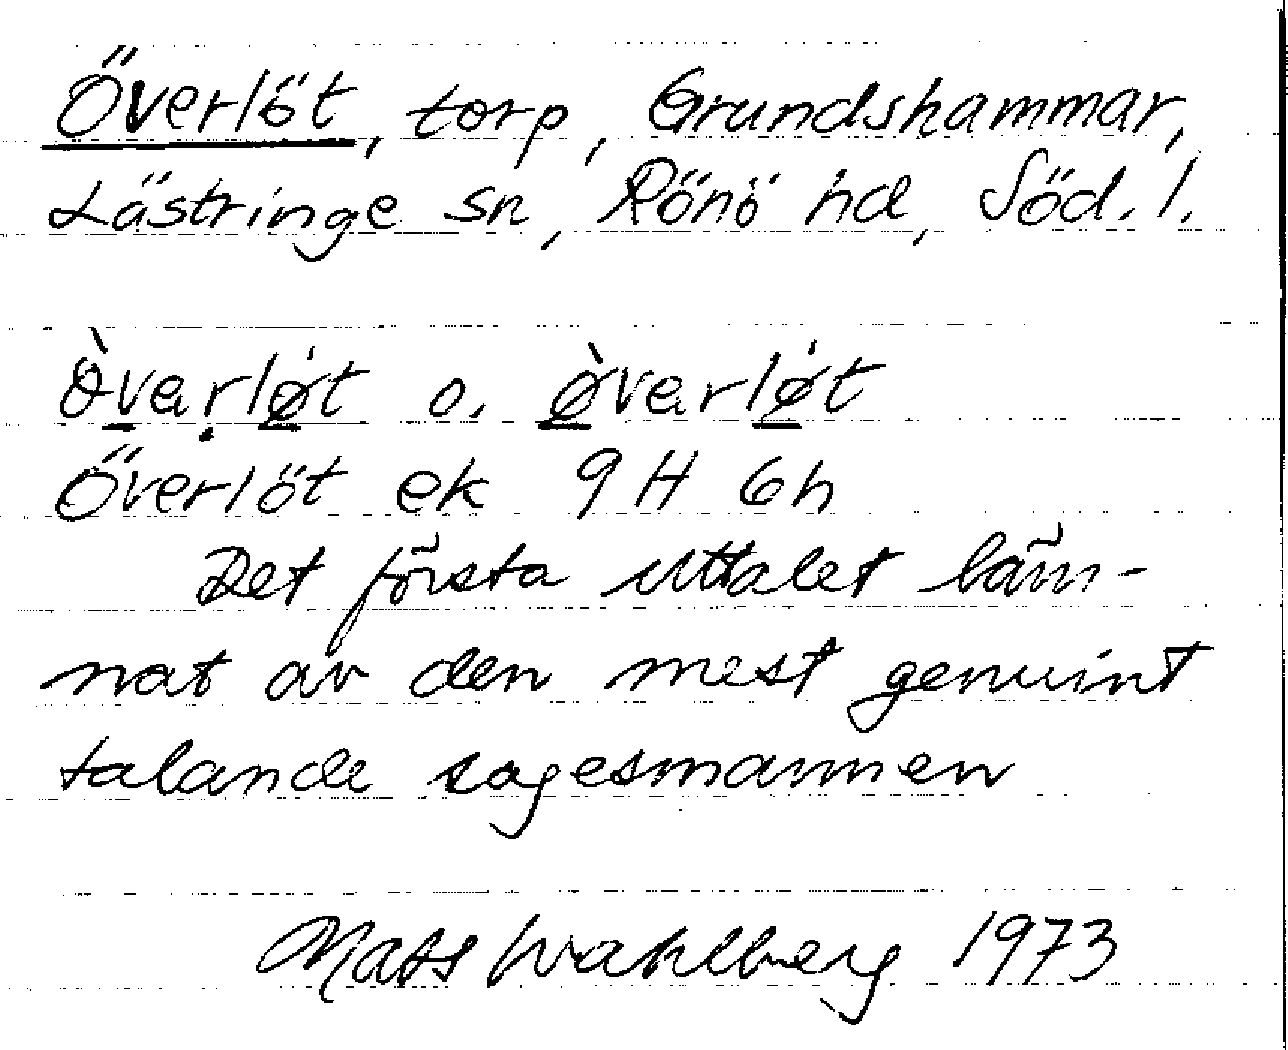 Överlöt, torp, Grundshammar,
Lästringe sn, Rönö hd, Söd. l.
òvarløt o. ø̀varløt
Överlöt ek 9H 6h
Det första uttalet läm-
nat av den mest genuint
talande sagesmannen
Mats Wahlberg 1973